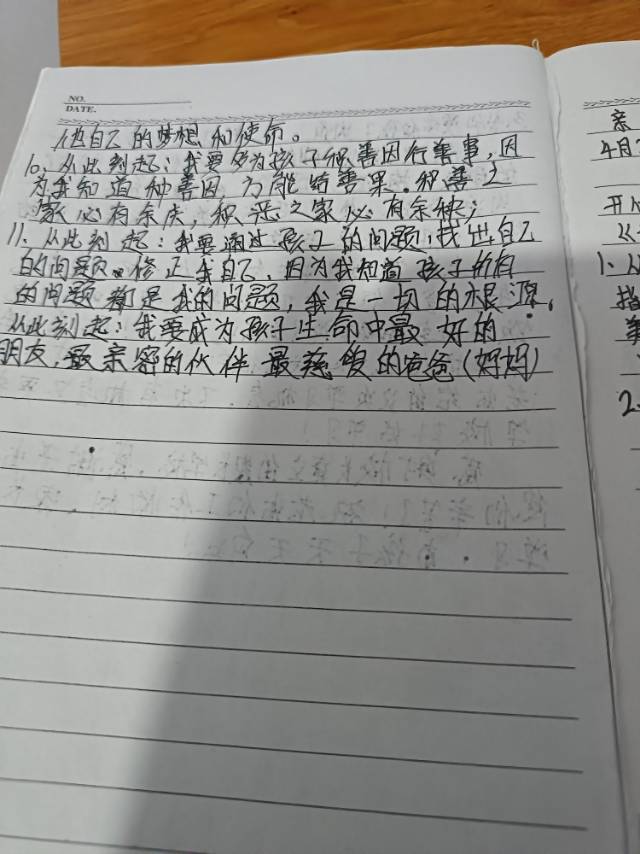 NO.
DATE.
他自己的梦想和使命。
10、从此刻起：我要多为孩子积善因行善事，因
为我知道种善因方能结善果。积善之
家必有余庆，积恶之家必有余殃；
11、从此刻起：我要通过孩子的问题，找出自己
的问题。修正我自己，因为我知道孩子所有
的问题都是我的问题，我是一切的根源。
从此刻起：我要成为孩子生命中最好的
朋友，最亲密的伙伴最慈爱的爸爸（妈妈）
亲
4月
开
《
1、
指
2.